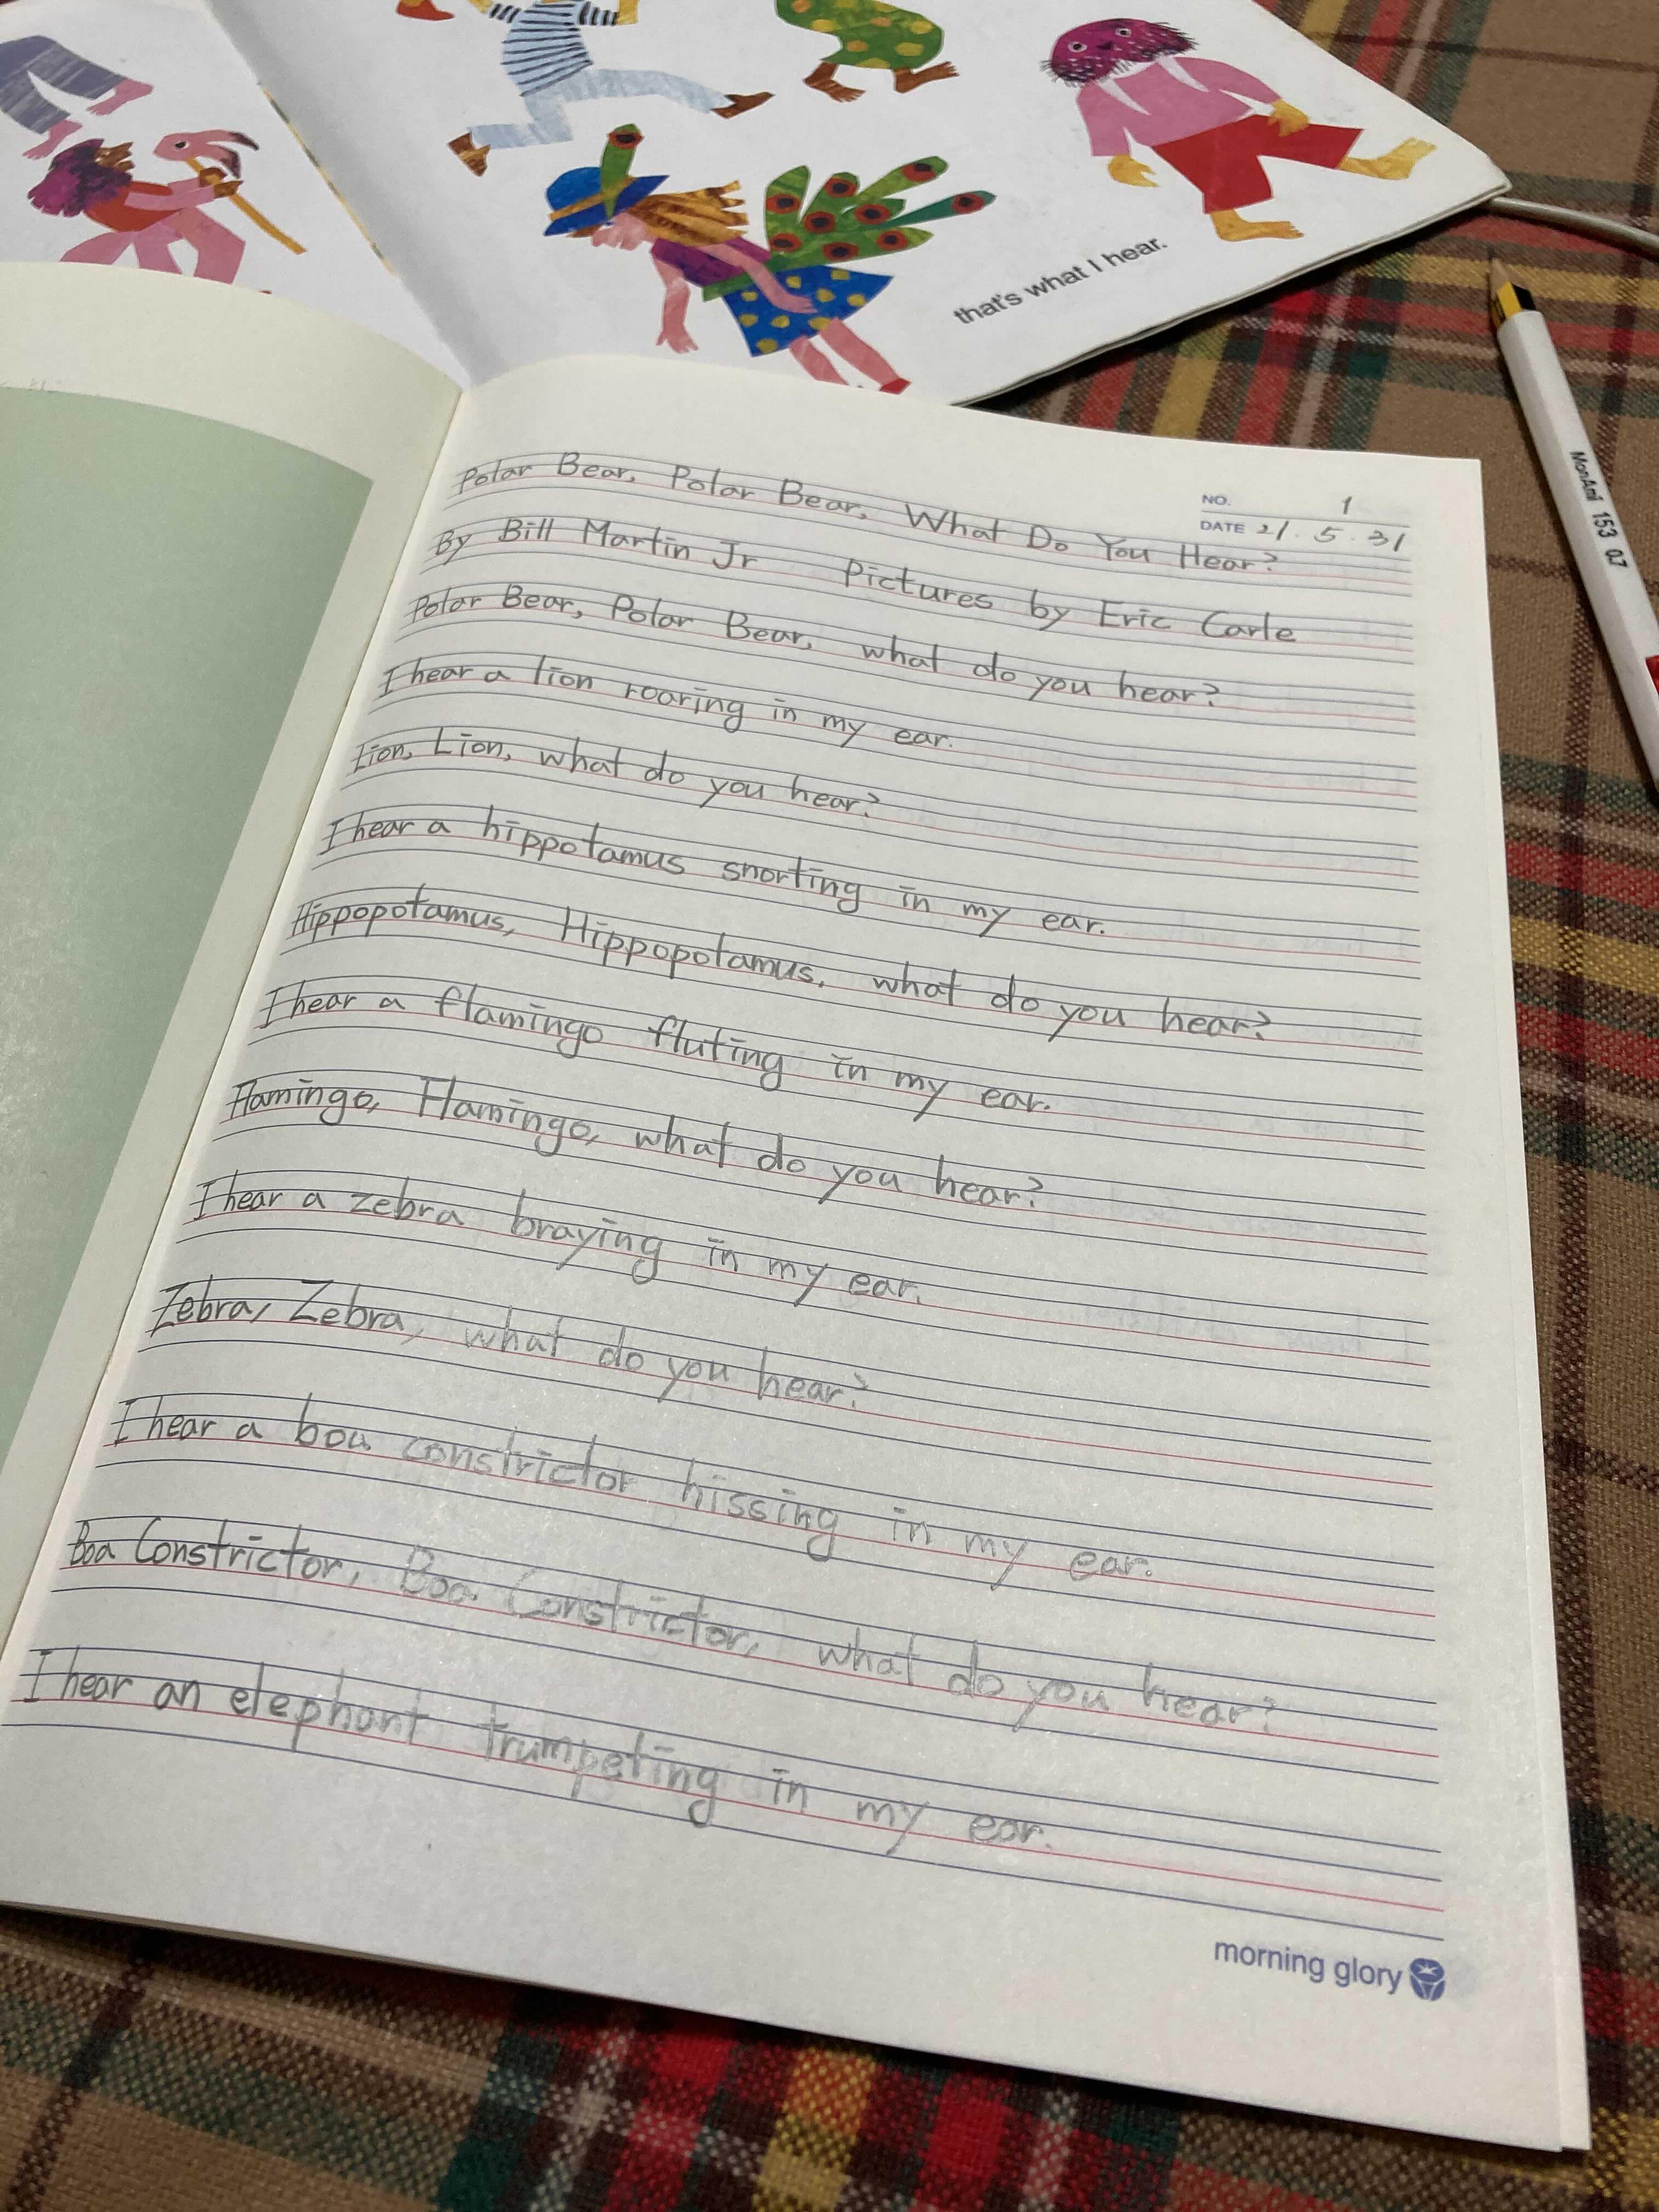 that's what I hear.
MonAmi 153 0.7
NO. 1
DATE 21. 5. 31
Polar Bear, Polar Bear, What Do You Hear?
By Bill Martin Jr Pictures by Eric Carle
Polar Bear, Polar Bear, what do you hear?
I hear a lion roaring in my ear.
Lion, Lion, what do you hear?
I hear a hippotamus snorting in my ear.
Hippopotamus, Hippopotamus, what do you hear?
I hear a flamingo fluting in my ear.
Flamingo, Flamingo, what do you hear?
I hear a zebra braying in my ear.
Zebra, Zebra, what do you hear?
I hear a boa constrictor hissing in my ear.
Boa Constrictor, Boa Constrictor, what do you hear?
I hear an elephant trumpeting in my ear.
morning glory